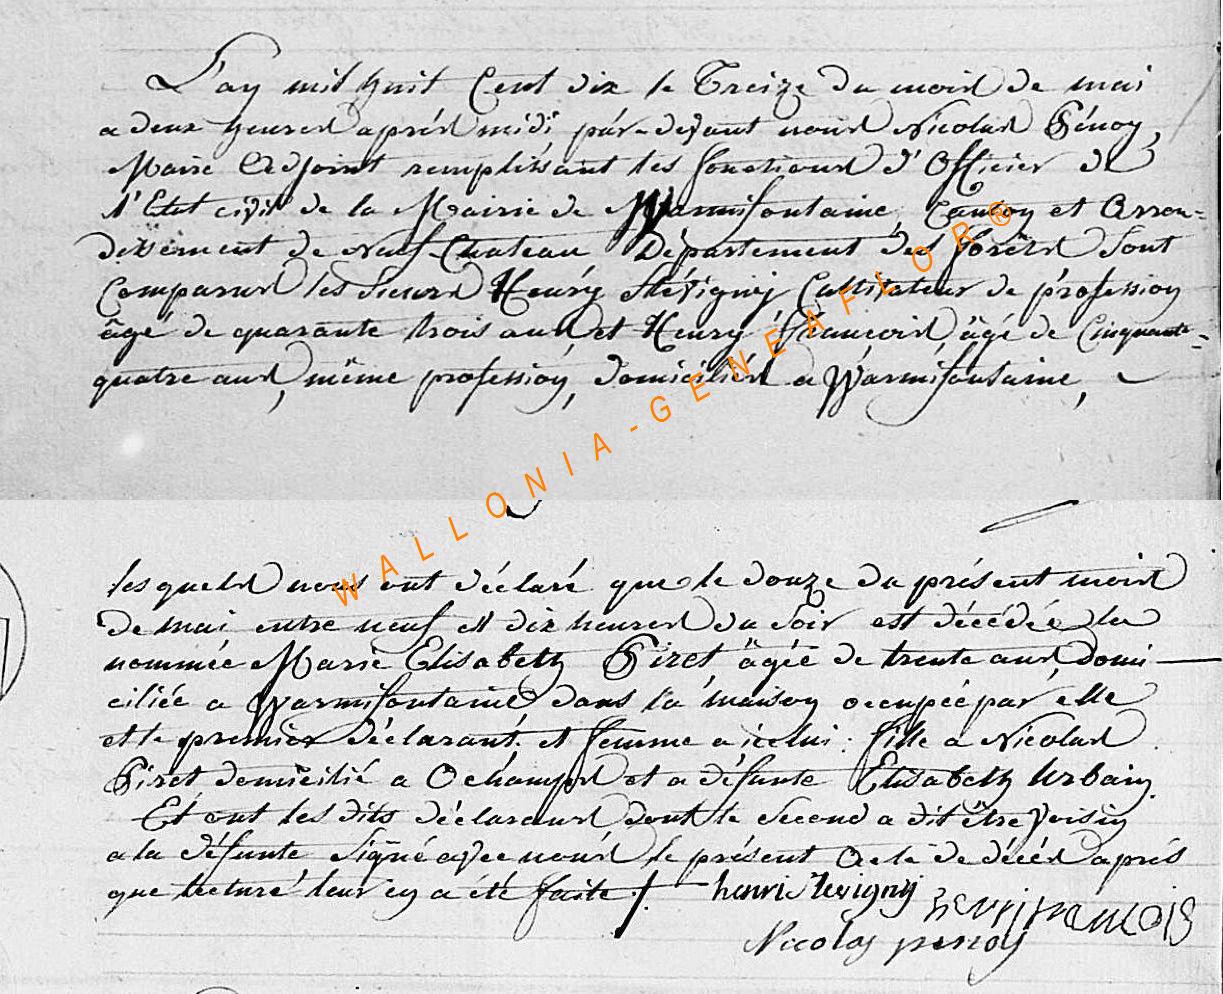 L'an mil huit Cent dix le Treize du mois de mai
a deux heures après midi pár-devant nous Nicolas Pénoy,
Maire Adjoint remplissant les fonctions d'Officier de
l'Etat civil de la Mairie de Warmifontaine, Canton et Arron=
dissement de Neuf-Chateau Département des forêts Sont
Comparus les Sieurs Henry Stévigny Cultivateur de profession
âgé de quarante trois ans et Henry François, âgé de Cinquante=
quatre ans, même profession, domiciliés a Warmifontaine,
WALLONIA-GENEAFLOR®
lesquels nous ont déclaré que le douze du présent mois
de mai entre neuf et dix heures du Soir est décédée la
nommée Marie Elisabeth Piret âgée de trente ans, domi-
ciliée a Warmifontaine dans la maison occupée par elle
et le premier déclarant. et femme a icelui: fille a Nicolas
Piret domicilié a Ochamps et a défunte Elisabeth Urbain.
Et ont les dits déclarans dont le Second a dit être Voisin
a la défunte Signé avec nous le présent Acte de décés après
que lecture leur en a été faite /.
henri stevigny
henri francois
Nicolas penoy